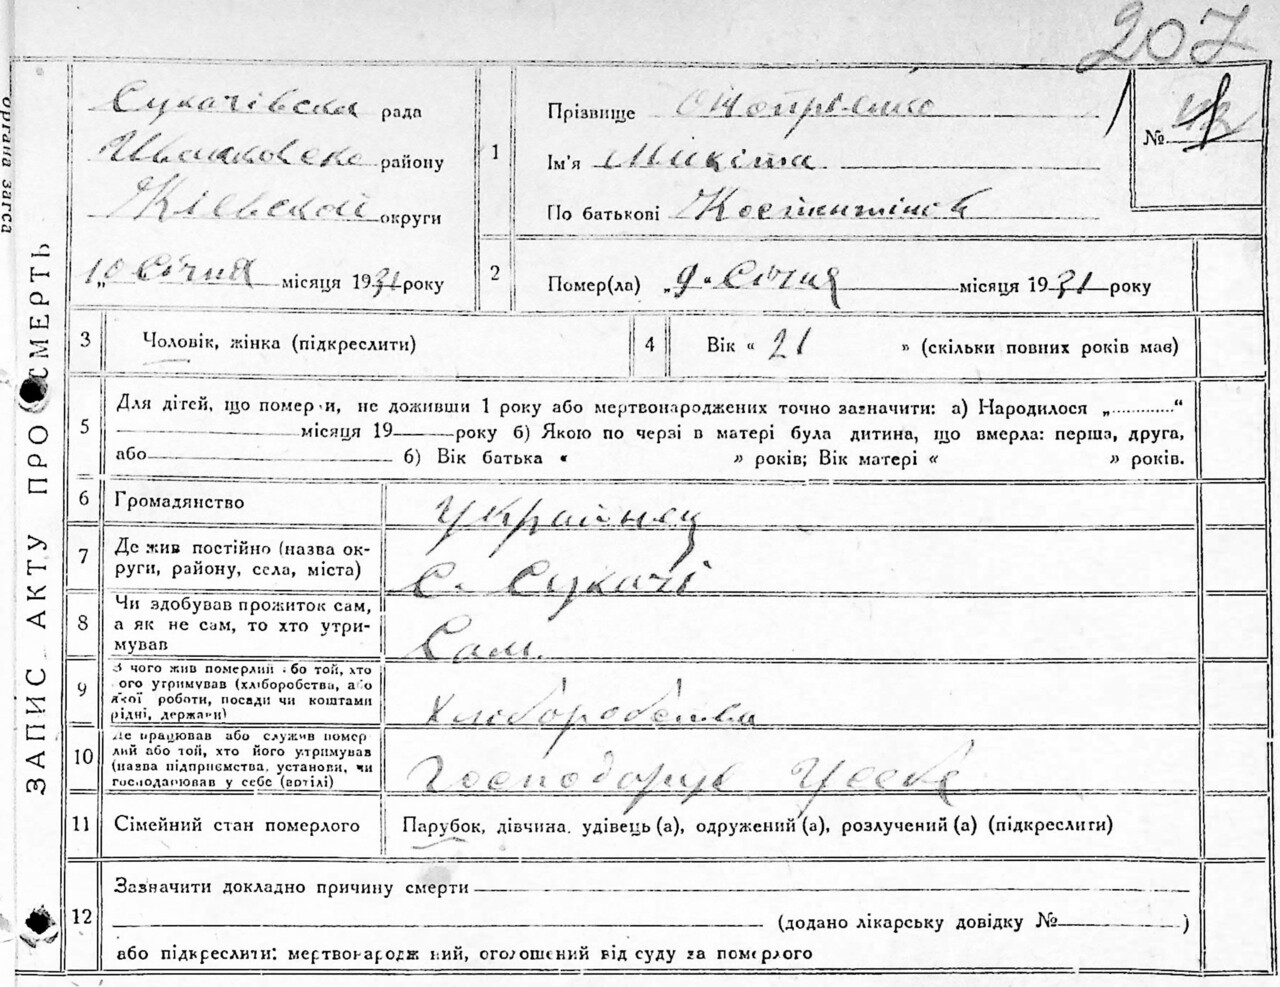 207
органа загса
ЗАПИС АКТУ ПРО СМЕРТЬ
Сукачівска рада
Іванковско району
Кіевской округи
„10 Січня місяця 1931 року
1
Прізвище Онопріенко
Ім'я Микіта
По батькові Костянтінов
№ 1
2
Помер(ла) „9" Січня місяця 1931 року
3
Чоловік, жінка (підкреслити)
4
Вік « 21 » (скільки повних років має)
5
Для дітей, що померли, не доживши 1 року або мертвонароджених точно зазначити: а) Народилося „............"
місяця 19 року б) Якою по черзі в матері була дитина, що вмерла: перша, друга,
або б) Вік батька « » років; Вік матері « » років.
6
Громадянство
Украйнец
7
Де жив постійно (назва ок-
руги, району, села, міста)
С. Сукачі
8
Чи здобував прожиток сам,
а як не сам, то хто утри-
мував
Сам.
9
З чого жив померлий або той, хто
його утримував (хліборобства, або
якої роботи, посади чи коштами
рідні, держави)
Хліборобства
10
Де працював або служив помер
лий або той, хто його утримував
(назва підприємства, установи, чи
господарював у себе (вдома)
Господорує Усебе
11
Сімейний стан померлого
Парубок, дівчина, удівець (а), одружений (а), розлучений (а) (підкреслити)
12
Зазначити докладно причину смерти
(додано лікарську довідку № )
або підкреслити: мертвонароджений, оголошений від суду за померлого